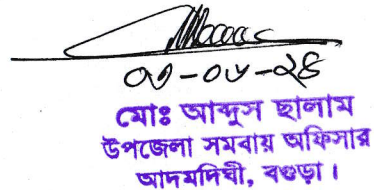 ০৩-০৮-২৪
মোঃ আব্দুস ছালাম
উপজেলা সমবায় অফিসার
আদমদিঘী, বগুড়া।